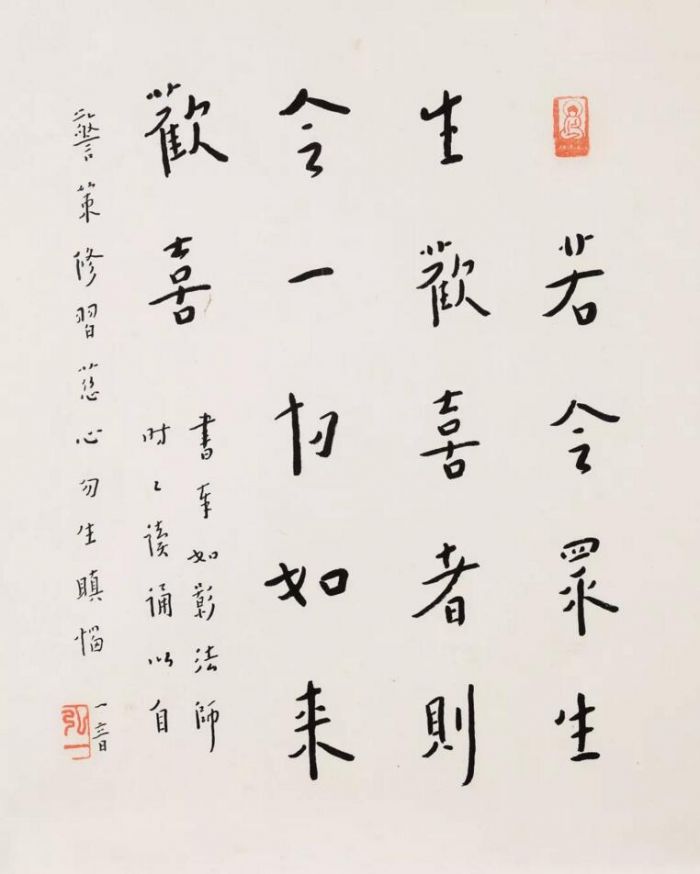 若令眾生
生歡喜者則
令一切如来
歡喜
書奉如影法師
时々讀誦以自
警策修習慈心勿生瞋惱
一音
弘一